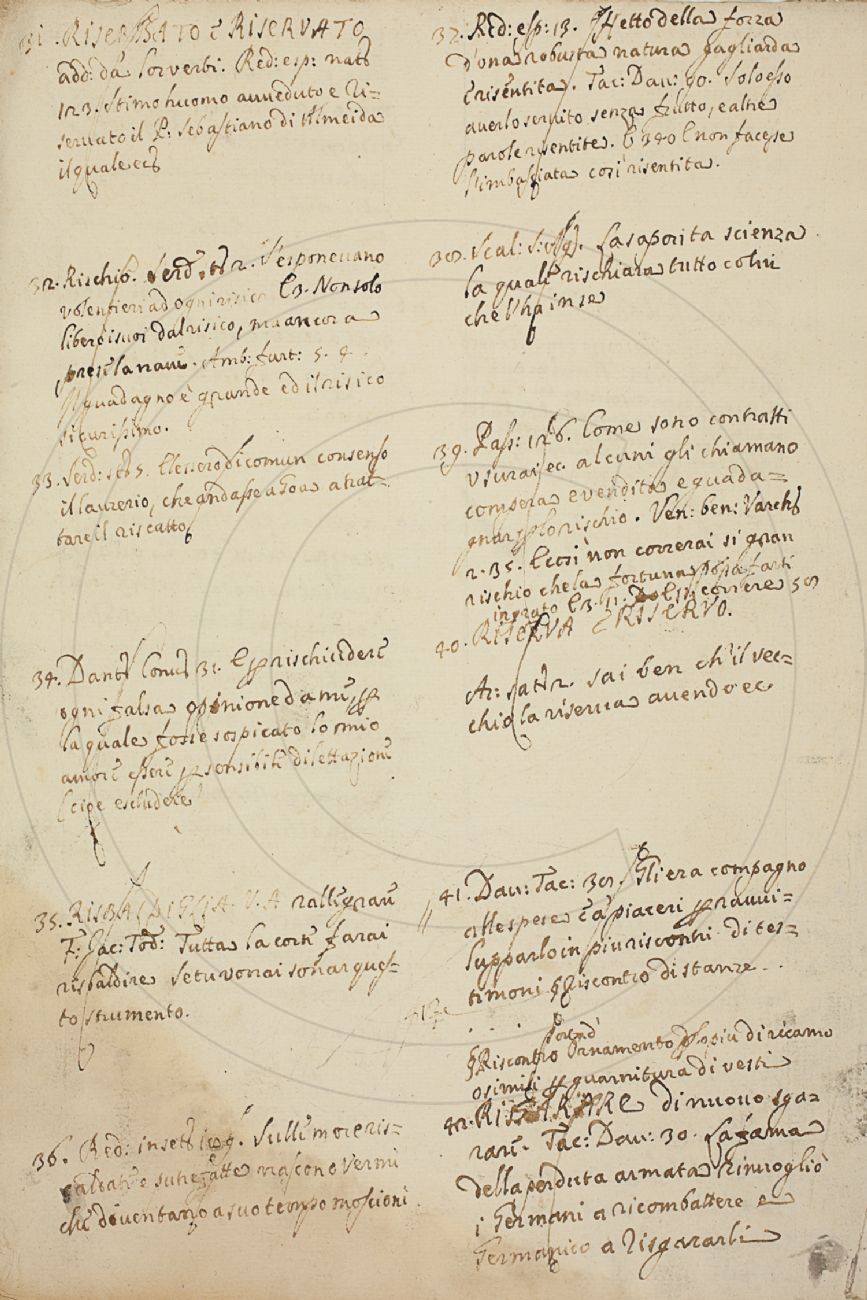 31. RISERBATO e RISERVATO
add: da lor verbi. Red: esp: nat:
123. Stimo huomo avveduto e Ri=
servato il P: Sebastiano di Almeida
il quale ec
32. Rischio. Serd: st: 2. S'esponevano
volentieri ad ogni risico E 3. Non solo
liberi i suoi dal risico, ma ancora
prese la nave. Amb: furt: 5. 4.
Il guadagno è grande ed il risico
sicurissimo.
33. Serd: st: 5. Elessero di comun consenso
il laurerio, che andasse a Goa a trat=
tare il riscatto
34. Dant: Conv: 31. E p rischiudere
ogni falsa opinione da me, p
la quale fosse sospicato lo mio
amore essere p sensibile dilettazione
(cioe escludere
35. RISBALDIRE V. A rallegrare
F: Jac: Tod: Tutta la corte farai
risbaldire Se tu vorrai sonar ques=
to strumento.
36. Red: insett: 109. Sulle more ris=
caldate e sutrefatte nascono vermi
che diventano a suo tempo moscioni
37. Red: esp: 13. Effetto della forza
d'una robusta natura gagliarda
e risentita. Tac: Dav: 90. Solo esso
averlo servito senza frutto, e altre
parole risentite. E 340 E non facesse
l'imbasciata così risentita.
38. Scal: S: Ag. La saporita scienza
la quale rischiara tutto colui
che l'ha in se
39. Pass: 126. Come sono contratti
usurai ec alcuni gli chiamano
compera e vendita e guada=
gnar p lo rischio. Ven: ben: Varch:
2. 35. E così non correrai si gran
rischio che la fortuna possa farti
ingrato E 3. 11. correre 50
40. RISERVA E RISERVO.
Ar: sat: 2. sai ben ch'il vec=
chio la riserva avendo ec
41. Dav: Tac: 301. Gli era compagno
alle spese e a' piaceri p ravvi=
lupparlo in piu riscontri di tes=
timoni § Riscontro di stanze..
. . .
§ Riscontro Ornamento p lo piu di ricamo
o simili p guarnitura di vesti
42. RISGARARE di nuovo sga=
rare. Tac: Dav: 30. La fama
della perduta armata rinvogliò
i Germani a ricombattere e
Germanico a risgararli